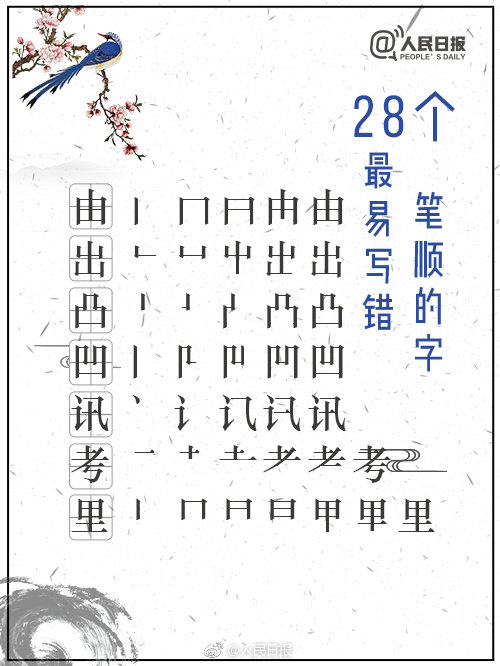 @人民日报
PEOPLE'S DAILY
28个
最易写错
笔顺的字
由 丨 冂 日 由 由
出 出
凸 丨 凸 凸
凹 丨 凹 凹
讯 丶 讠 讯
考 一 十 土 耂 考
里 丨 冂 日 日 甲 里 里
@人民日报